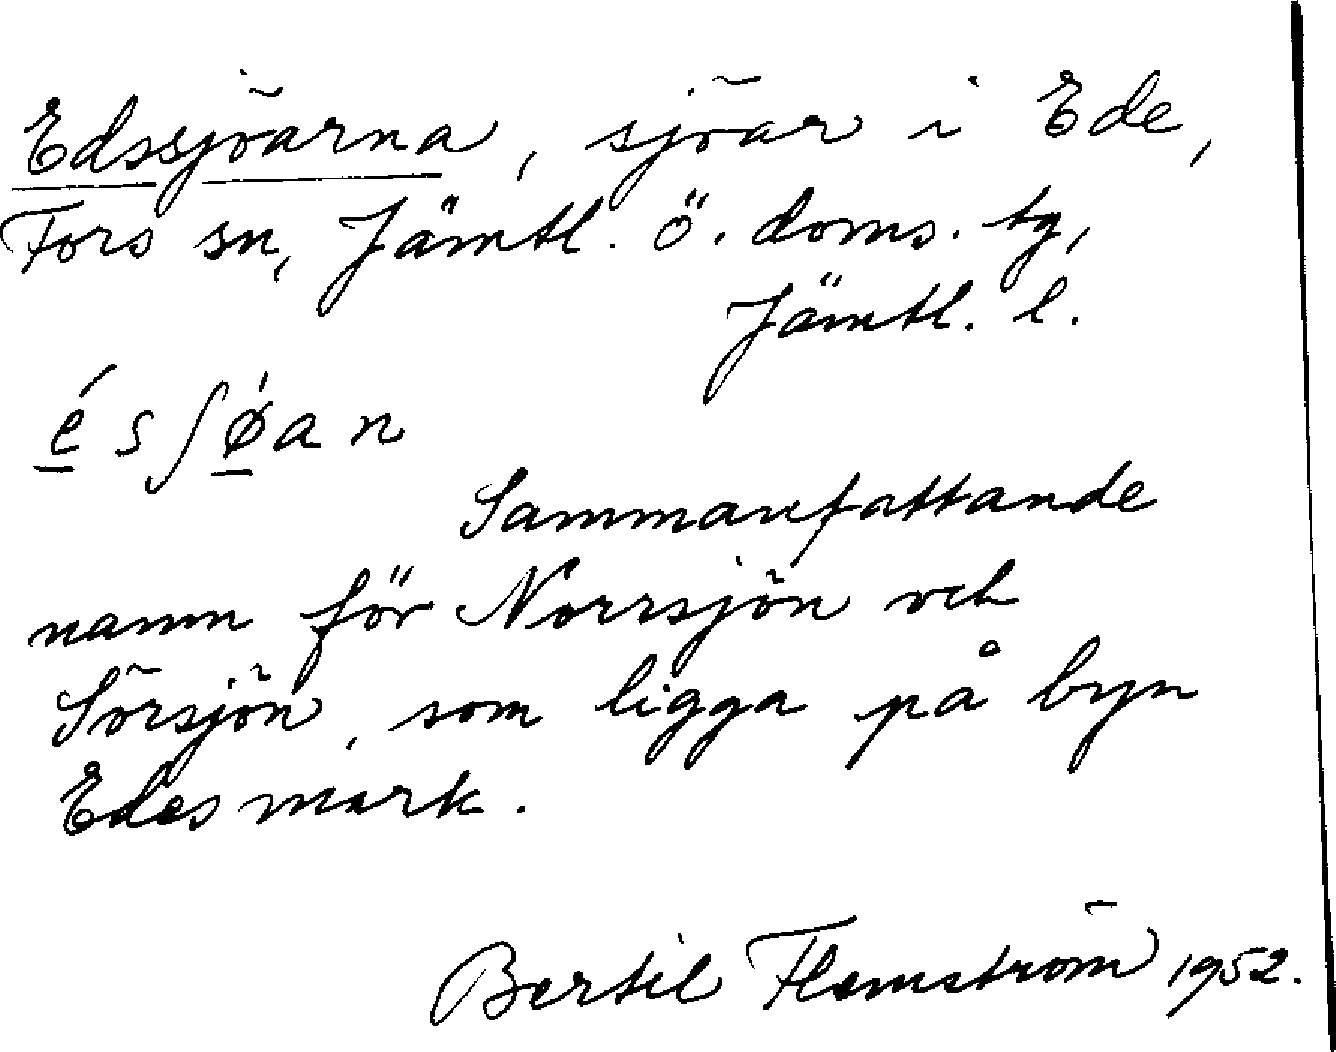 Edssjöarna, sjöar i Ede,
Fors sn, Jämtl. ö. doms. tg,
Jämtl. l.
é̱sʃǿ̱an
Sammanfattande
namn för Norrsjön och
Sörsjön, som ligga på byn
Edes mark.
Bertil Flemström 1952.